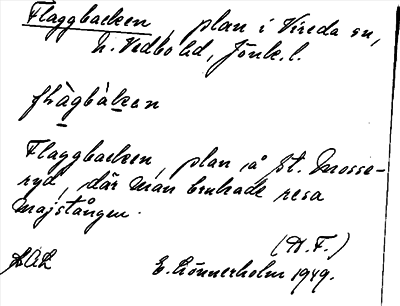 Flaggbacken, plan i Vireda sn,
N. Vedbo hd, Jönk. l.
flàgbàkan
Flaggbacken, plan å St. Mosse-
ryd, där man brukade resa
majstången.
(H.F.)
E. Rönnerholm 1949.